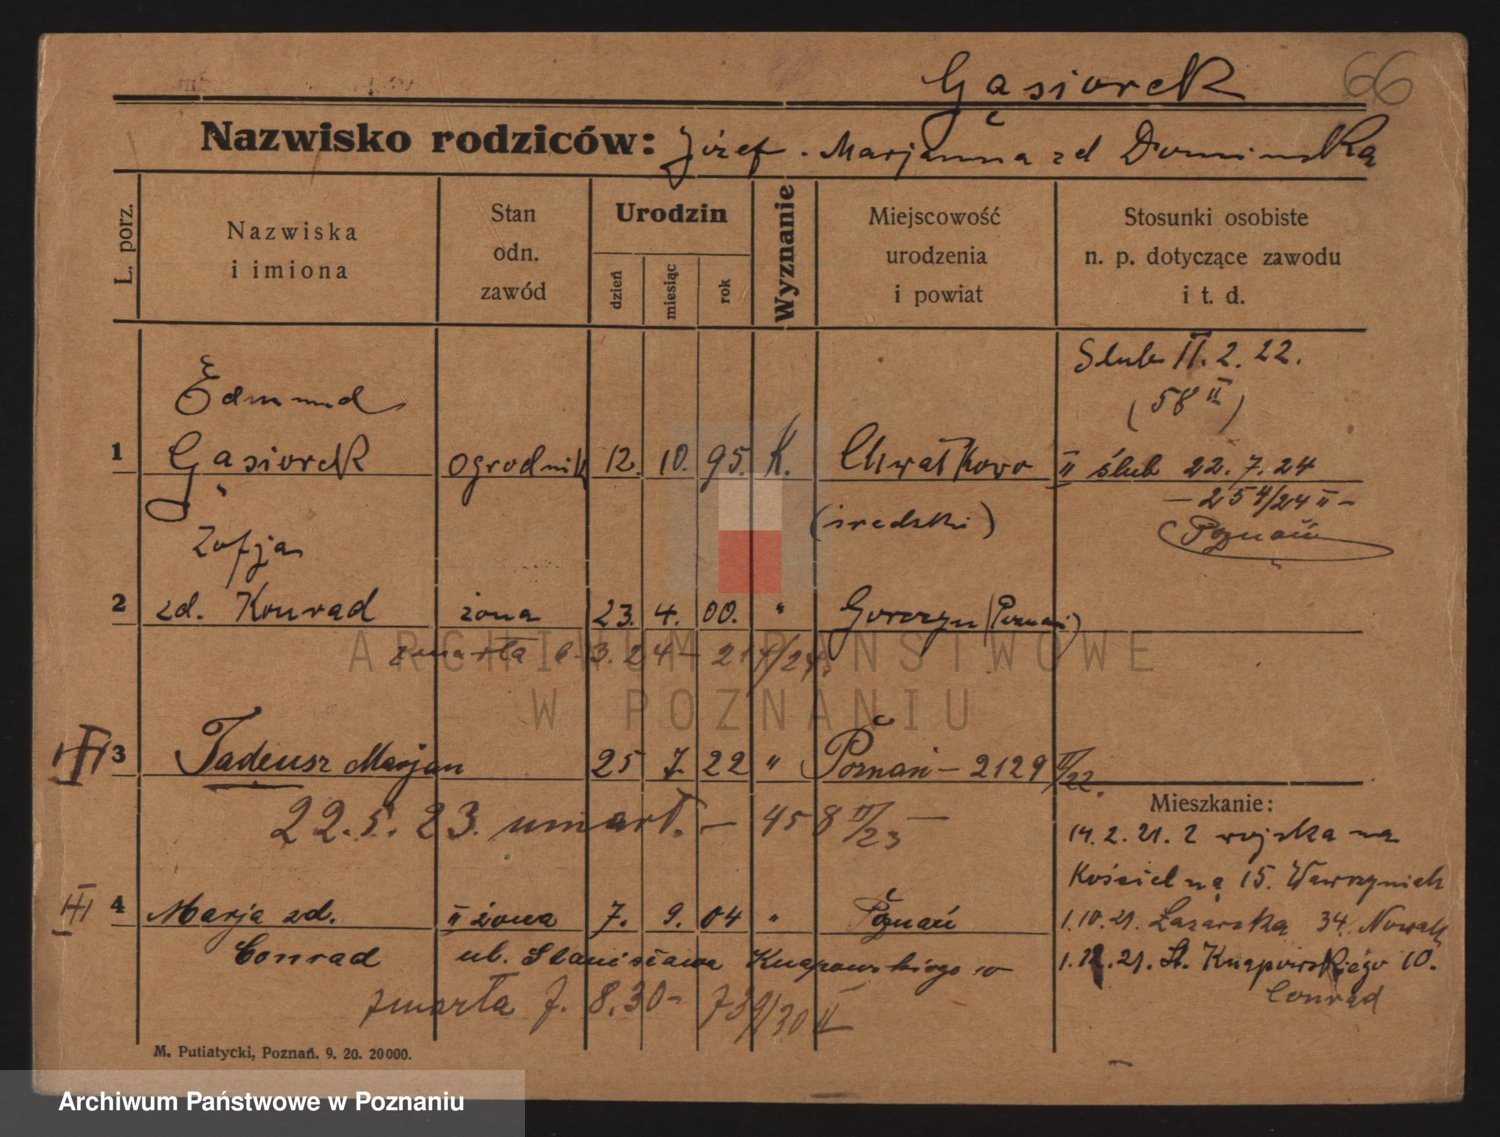 Gąsiorek 66
Nazwisko rodziców: Józef - Marjanna zd Dominska
L. porz.
Nazwiska
i imiona
Stan
odn.
zawód
Urodzin
dzień
miesiąc
rok
Wyznanie
Miejscowość
urodzenia
i powiat
Stosunki osobiste
n. p. dotyczące zawodu
i t. d.
Slub 11. 2. 22.
(58 II)
Edmund
1 Gąsiorek ogrodnik 12. 10. 95. K. Chwałkowo II ślub 22. 7. 24
- 254/24 II -
(średzki) Poznań
Zofja
2 zd. Konrad żona 23. 4. 00. " Gorczyn (Poznań)
zmarła 3. 24 - 214/24
ARCHIWUM PAŃSTWOWE
W POZNANIU
III 3 Tadeusz Marjan 25 7. 22 " Poznań - 2129 II/22.
22. 5. 23. umarł. - 458 II/23 -
Mieszkanie:
14. 2. 21. z wojska na
Kościelną 15. Wawrzyniak
III 4 Marja zd. II żona 7. 9. 04 " Poznań
1. 10. 21. Łazarska 34. Nowak
Conrad ul. Stanisława Knapowskiego 10
1. 12. 21. St. Knapowskiego 10.
Conrad
zmarła 7. 8. 30 - 739/30 II
M. Putiatycki, Poznań. 9. 20. 20000.
Archiwum Państwowe w Poznaniu